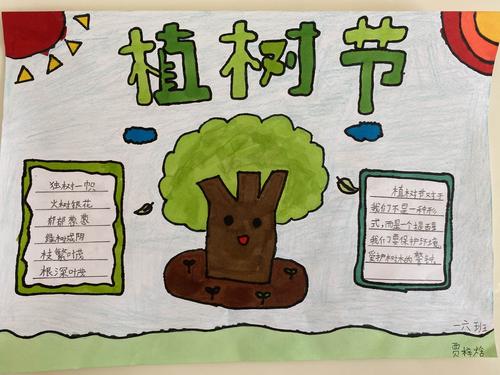 植树节
独树一帜
火树银花
郁郁葱葱
绿树成阴
枝繁叶茂
根深叶茂
植树节对于
我们不是一种形
式,而是一个提醒
我们要保护环境
爱护树木的警钟
一六班
贾梓焓